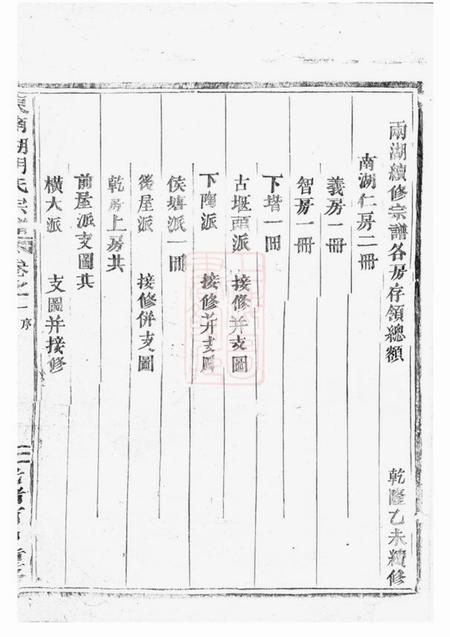 兩湖續修宗譜各房存領總額
乾隆乙未續修
南湖仁房二冊
義房一冊
智房一冊
下堦一冊
古堰頭派 接修并支圖
下陶派 接修并支圖
侯塘派一冊
後屋派 接修併支圖
乾房上房共
前屋派支圖共
橫大派 支圖并接修
南湖周氏宗譜 卷之一 序